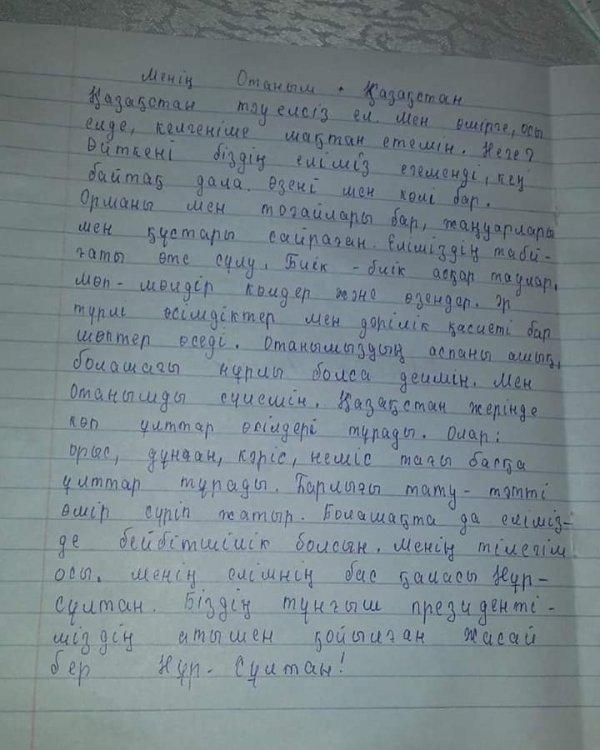 Менің Отаным - Қазақстан
Қазақстан тәуелсіз ел. Мен өмірге, осы
елде, келгеніме мақтан етемін. Неге?
Өйткені біздің еліміз егеменді, кең
байтақ дала. Өзені мен көлі бар.
Орманы мен тоғайлары бар, жаңуарлары
мен құстары сайраған. Еліміздің таби-
ғаты өте сұлу. Биік - биік асқар таулар.
Мөп - мөлдір көлдер және өзендер. Әр
түрлі өсімдіктер мен дәрілік қасиеті бар
шөптер өседі. Отанымыздың аспаны ашық,
болашағы нұрлы болса деймін. Мен
Отанымды сүйемін. Қазақстан жерінде
көп ұлттар өкілдері тұрады. Олар:
орыс, дүнған, кәріс, неміс тағы басқа
ұлттар тұрады. Барлығы тату - тәтті
өмір сүріп жатыр. Болашақта да еліміз-
де бейбітшілік болсын. Менің тілегім
осы. Менің елімнің бас қаласы Нұр-
Сұлтан. Біздің тұнғыш президенті-
міздің атымен қойылған жасай
бер Нұр - Сұлтан!